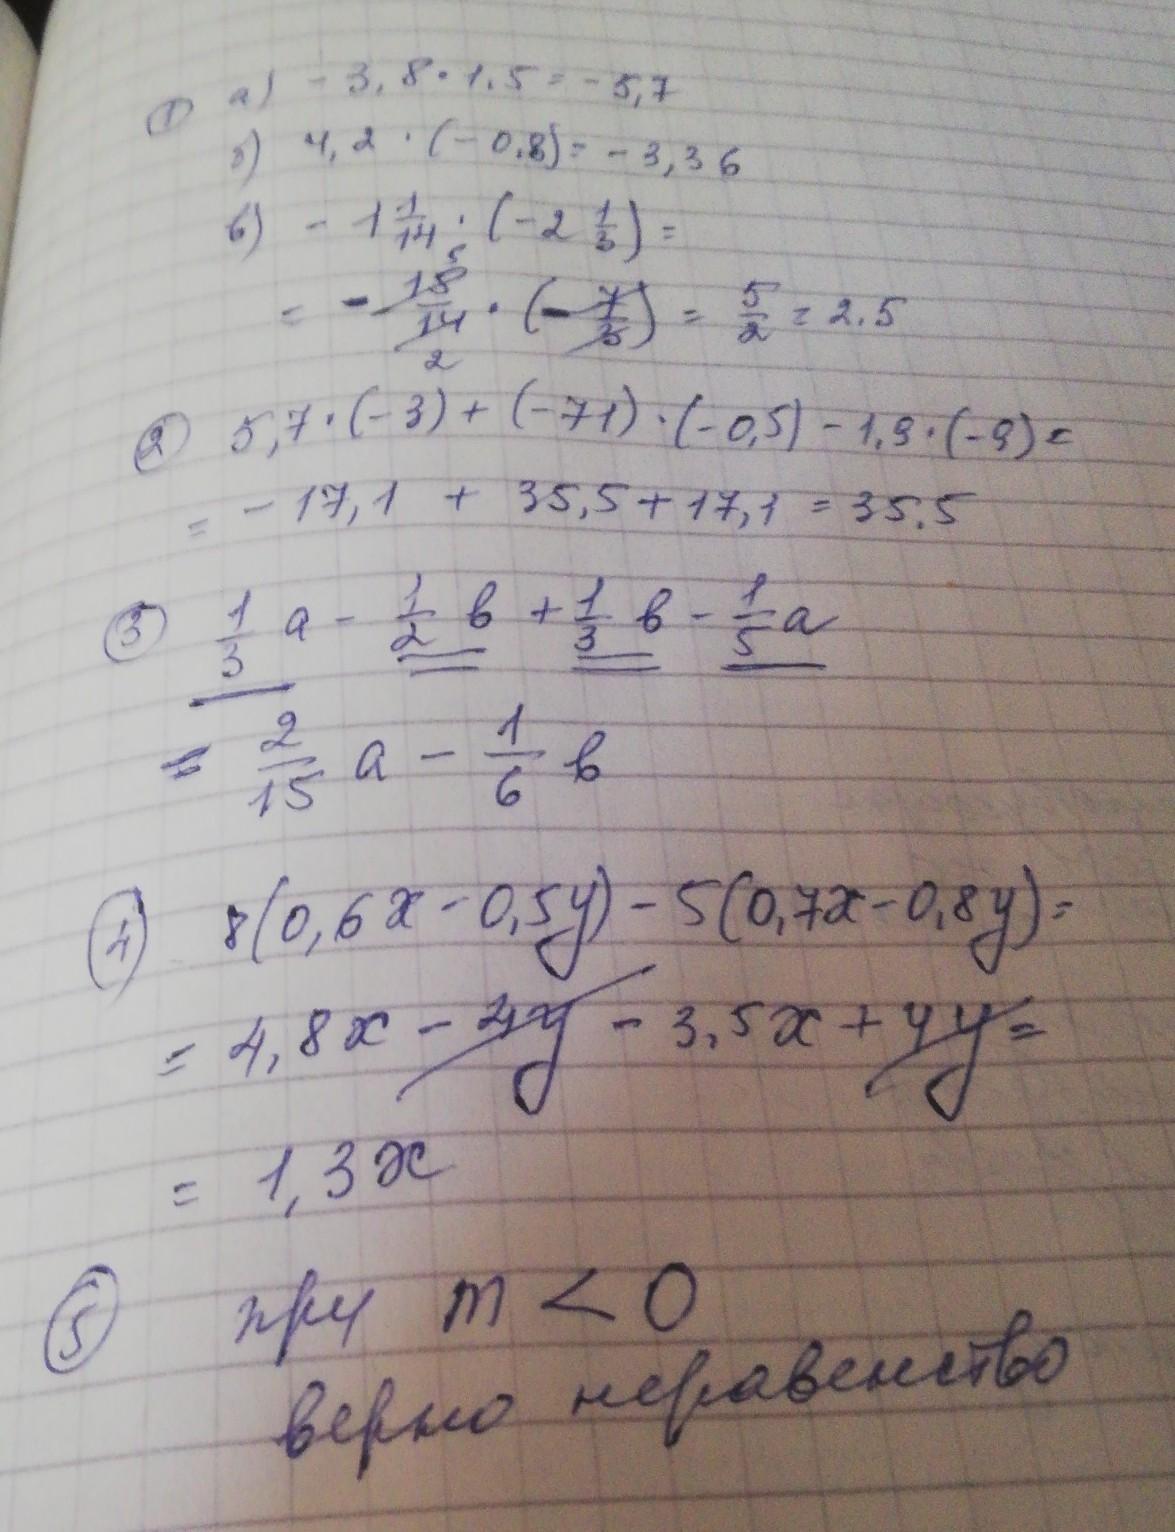 ① а) - 3,8 · 1.5 = - 5,7
б) 4,2 · (- 0.8) = - 3,36
в) - 1 1/14 · (-2 1/3) =
= - 15/14 · (- 7/3) = 5/2 = 2.5
5
2
② 5,7 · (-3) + (-71) · (-0,5) - 1,9 · (-9) =
= - 17,1 + 35,5 + 17,1 = 35.5
③ 1/3 а - 1/2 в + 1/3 в - 1/5 а
= 2/15 а - 1/6 в
④ 8(0,6x - 0,5y) - 5(0,7x - 0,8y) =
= 4,8x - 4y - 3,5x + 4y =
= 1,3x
⑤ при m < 0
верно неравенство